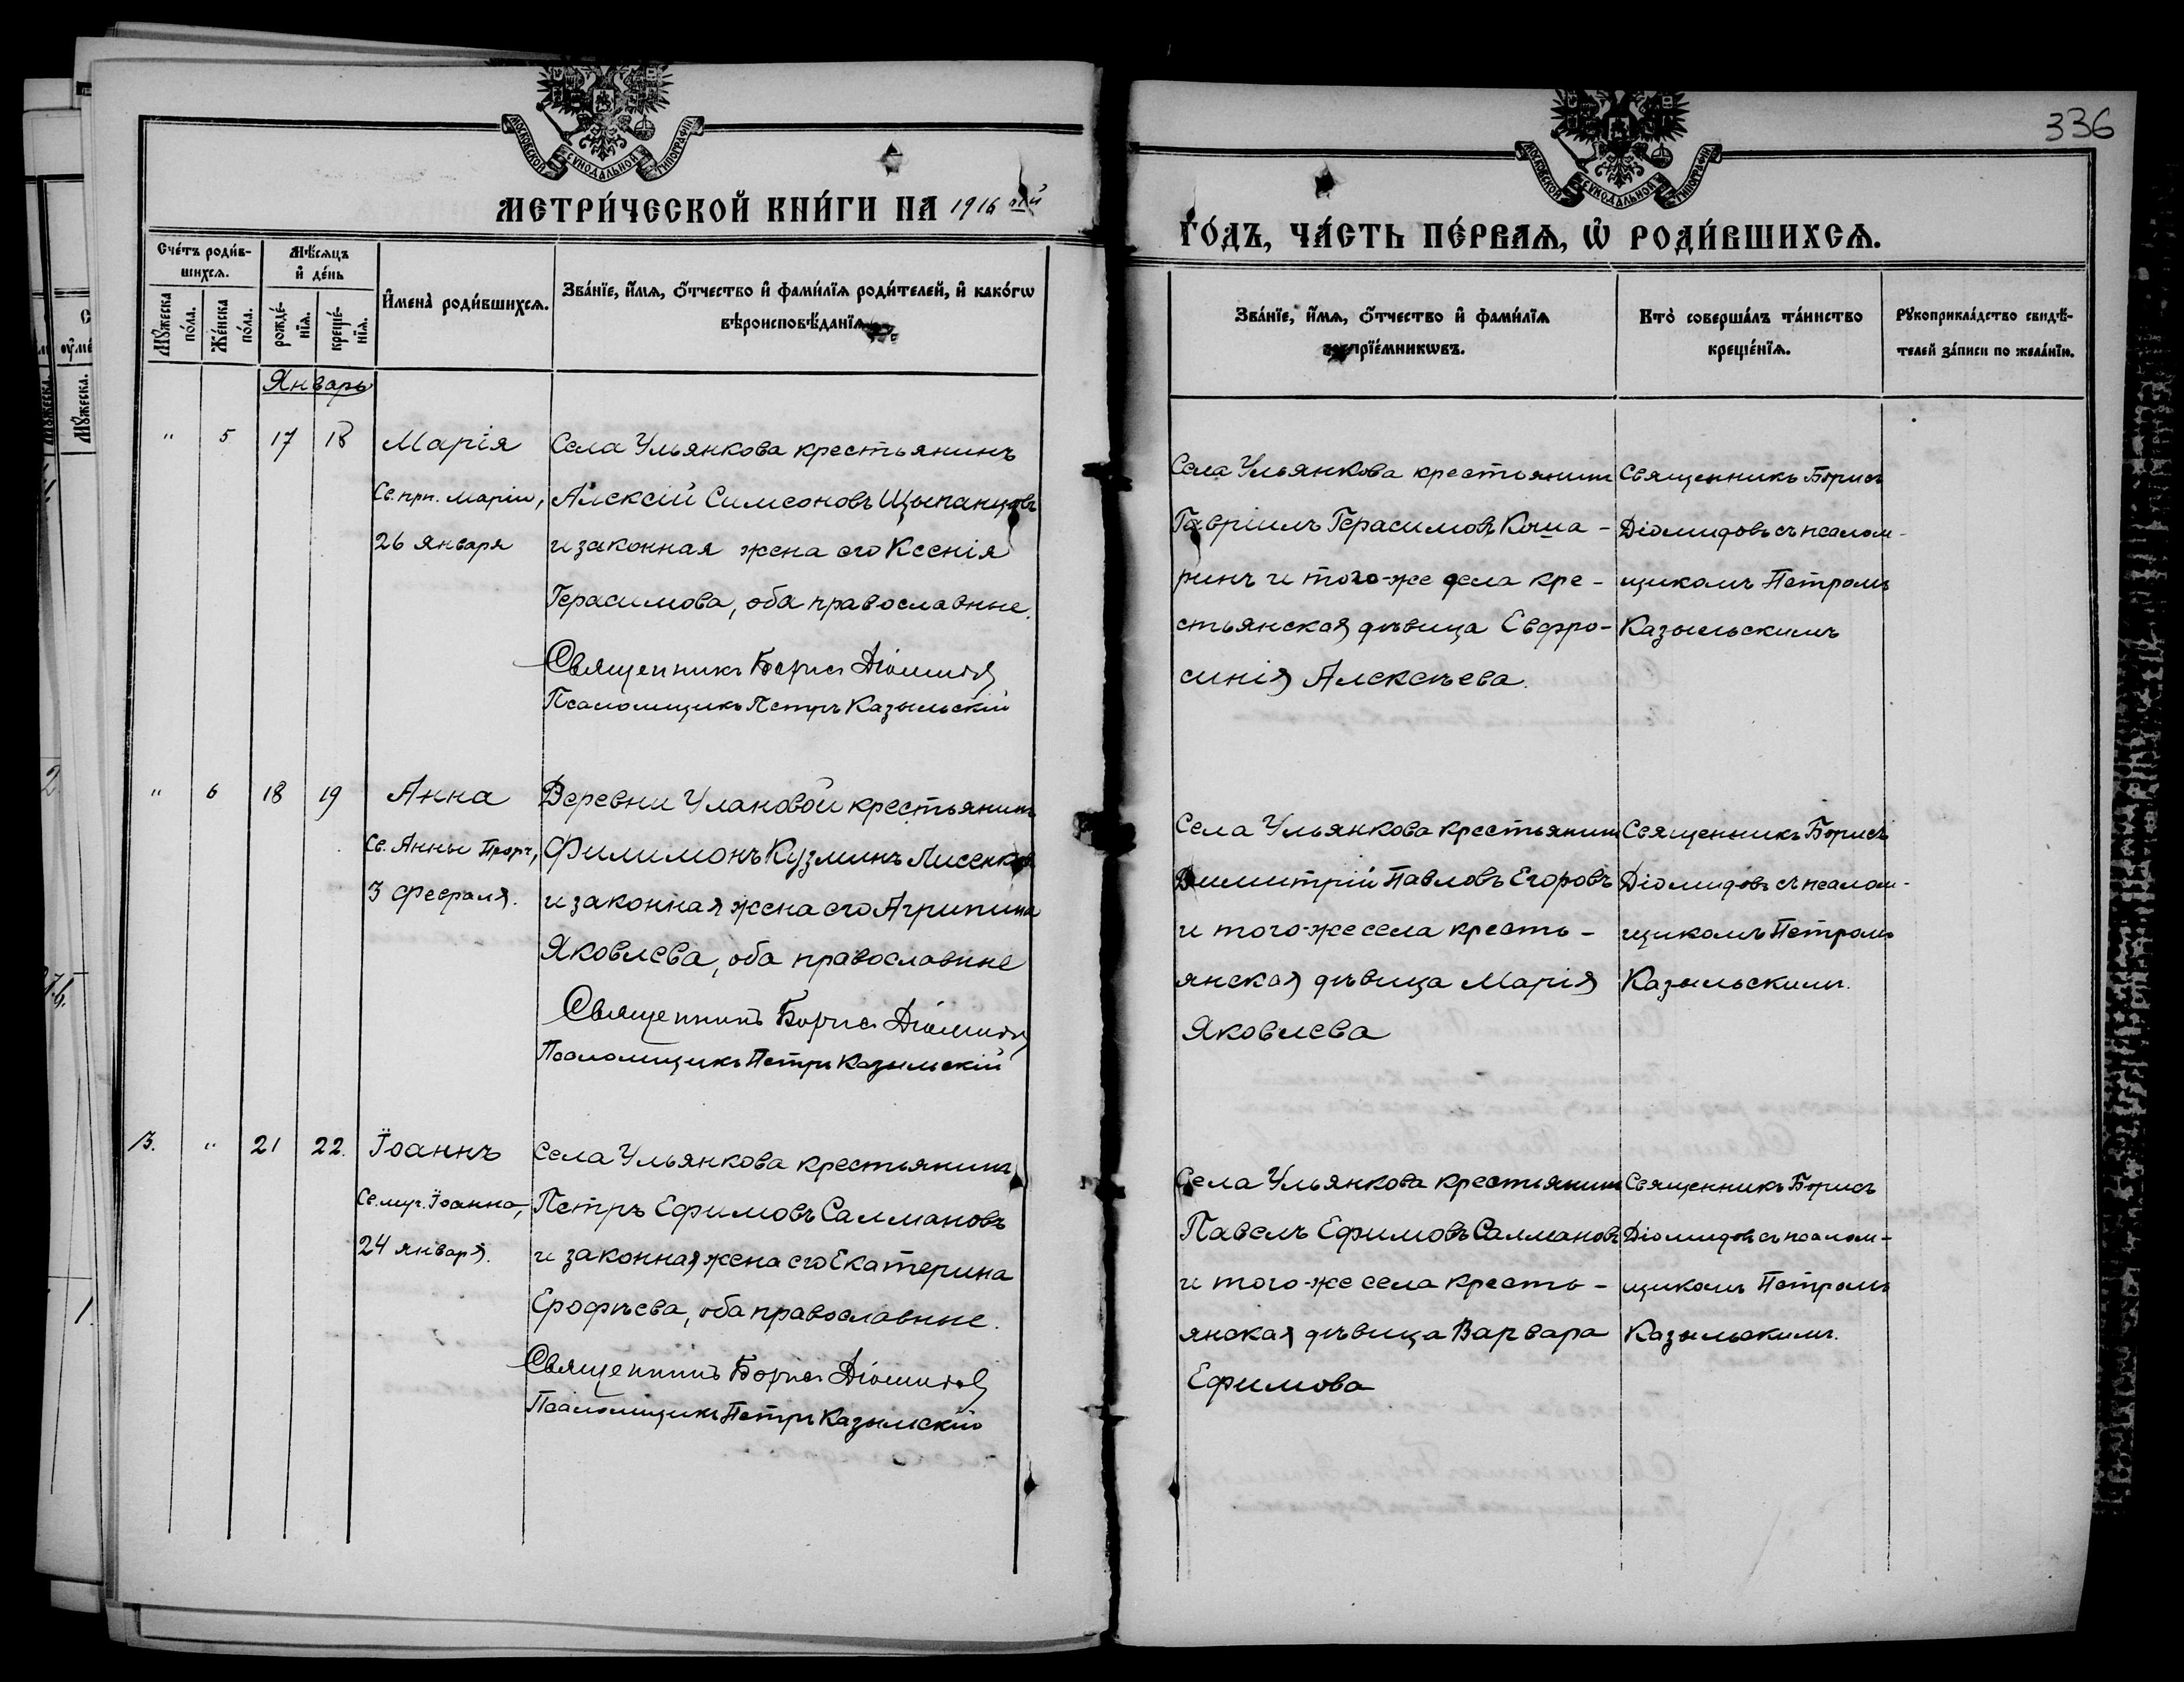 336
МОСКОВСКОЙ СѴНОДАЛЬНОЙ ТИПОГРАФІИ
МОСКОВСКОЙ СѴНОДАЛЬНОЙ ТИПОГРАФІИ
МЕТРИ́ЧЕСКОЙ КНИ́ГИ НА 1916 ый
ГО́ДЪ, ЧА́СТЬ ПЕ́РВАѦ, Ѡ РОДИ́ВШИХСѦ.
Сче́тъ роди́в-
шихсѧ.
Мꙋжеска по́ла.
Же́нска по́ла.
Мѣ́сѧцъ
и де́нь
рожде́-
нїѧ.
креще́-
нїѧ.
И́мена роди́вшихсѧ.
Зва́нїе, и́мѧ, ѻ́тчество и фами́лїѧ роди́телей, и како́гѡ
вѣроисповѣ́данїѧ
Зва́нїе, и́мѧ, ѻ́тчество и фами́лїѧ
воспрїе́мникѡвъ.
Кто̀ соверша́лъ та́инство
креще́нїѧ.
Рꙋкоприкла́дство свидѣ́-
телей за́писи по жела́нїю.
Январь
" 5 17 18
Марія
Св. прп. Маріи,
26 января
Села Ульянкова крестьянинъ
Алексій Симеоновъ Щыпанцовъ
и законная жена его Ксенія
Герасимова, оба православные.
Священникъ Борисъ Діомидов
Псаломщикъ Петръ Казыльскій
Села Ульянкова крестьянинъ
Гавріилъ Герасимовъ Коша-
ринъ и того-же села кре-
стьянская дѣвица Евфро-
синія Алексѣева.
Священникъ Борисъ
Діомидовъ съ псалом-
щикомъ Петромъ
Казыльскимъ
" 6 18 19
Анна
Св. Анны Прор.,
3 февраля.
Деревни Улановой крестьянинъ
Филимонъ Кузминъ Лисенковъ
и законная жена его Агрипина
Яковлева, оба православные
Священникъ Борисъ Діомидов
Псаломщикъ Петръ Казыльскій
Села Ульянкова крестьянинъ
Димитрій Павловъ Егоровъ
и того-же села кресть-
янская дѣвица Марія
Яковлева
Священникъ Борисъ
Діомидовъ съ псалом-
щикомъ Петромъ
Казыльскимъ.
13. " 21 22.
Іоаннъ
Св. муч. Іоанна,
24 января.
Села Ульянкова крестьянинъ
Петръ Ефимовъ Салмановъ
и законная жена его Екатерина
Ерофѣева, оба православные.
Священникъ Борисъ Діомидов
Псаломщикъ Петръ Казыльскій
Села Ульянкова крестьянинъ
Павелъ Ефимовъ Салмановъ
и того-же села кресть-
янская дѣвица Варвара
Ефимова
Священникъ Борисъ
Діомидовъ съ псалом-
щикомъ Петромъ
Казыльскимъ.